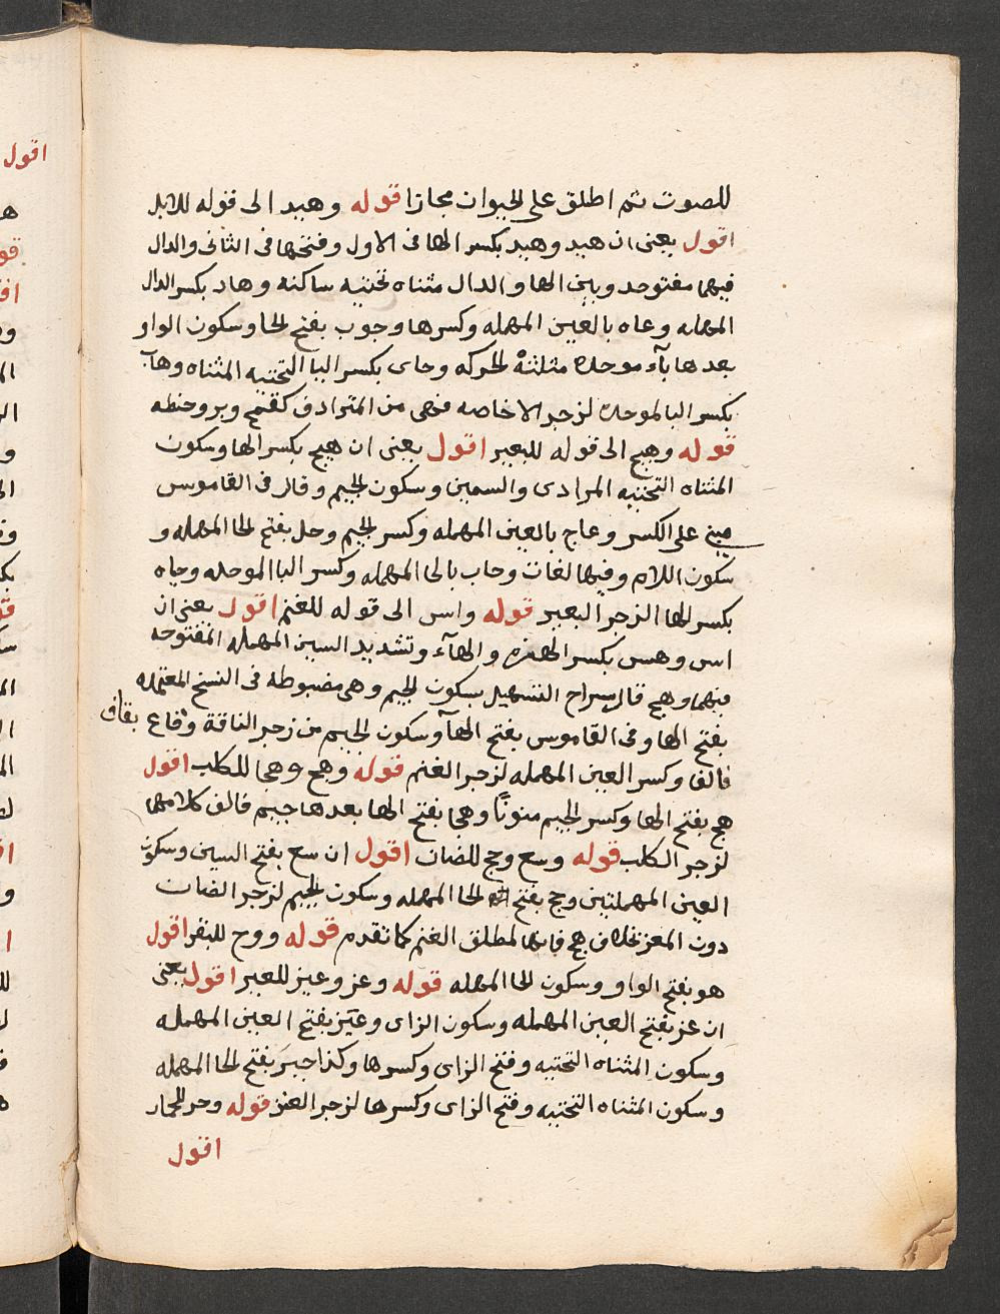 للصوت ثم اطلق على الحيوان مجازا قوله وهيد الى قوله للابل
اقول يعنى ان هيد وهيد بكسر الها فى الاول وفتحها فى الثانى والدال
فيهما مفتوحه وبين الها والدال مثناه تحتيه ساكنه وهاد بكسر الدال
المهمله وعاه بالعين المهمله وكسرها وجوب بفتح الحا وسكون الواو
بعدها بآء موحده مثلثة الحركه وحاى بكسر اليا التحتيه المثناه وهاب
بكسر البا الموحده لزجر الا خاصه فهى من المترادف كقمح وبر وحنطه
قوله وهيج الى قوله للبعير اقول يعنى ان هيج بكسر الها وسكون
المثناه التحتيه المرادى والسمين وسكون الجيم وقال فى القاموس
مبنى على الكسر وعاج بالعين المهمله وكسر الجيم وحل بفتح الحا المهمله و
سكون اللام وفيها لغات وحاب بالحا المهمله وكسر البا الموحده وجاه
بكسر الها الزجر البعير قوله واس الى قوله للغنم اقول يعنى ان
اس وهس بكسر الهمزه والهآء وتشديد السين المهمله المفتوحه
فيهما وهج قال سراح التسهيل بسكون الجيم وهى مضبوطه فى النسخ المعتمده
بفتح الها وفى القاموس بفتح الهآ وسكون الجيم من زجر الناقة وقاع بقاف
فالف وكسر العين المهمله لزجر الغنم قوله وهج وهجا للكلب اقول
هج بفتح الها وكسر الجيم منونًا وهجا بفتح الها بعدها جيم فالف كلامهما
لزجر الكلب قوله وسع وحج للضان اقول ان سع بفتح السين وسكون
العين المهملتين وحج بفتح الحا المهمله وسكون الجيم لزجر الضان
دون المعز بخلاف هج فانها لمطلق الغنم كما تقدم قوله ووح للبقر اقول
هو بفتح الواو وسكون الحا المهمله قوله وعز وعيز للعير اقول يعنى
ان عز بفتح العين المهمله وسكون الزاى وعيز بفتح العين المهمله
وسكون المثناه التحتيه وفتح الزاى وكسرها وكذا حيز بفتح الحا المهمله
وسكون المثناه التحتيه وفتح الزاى وكسرها لزجر العنز قوله وحر للحمار
اقول